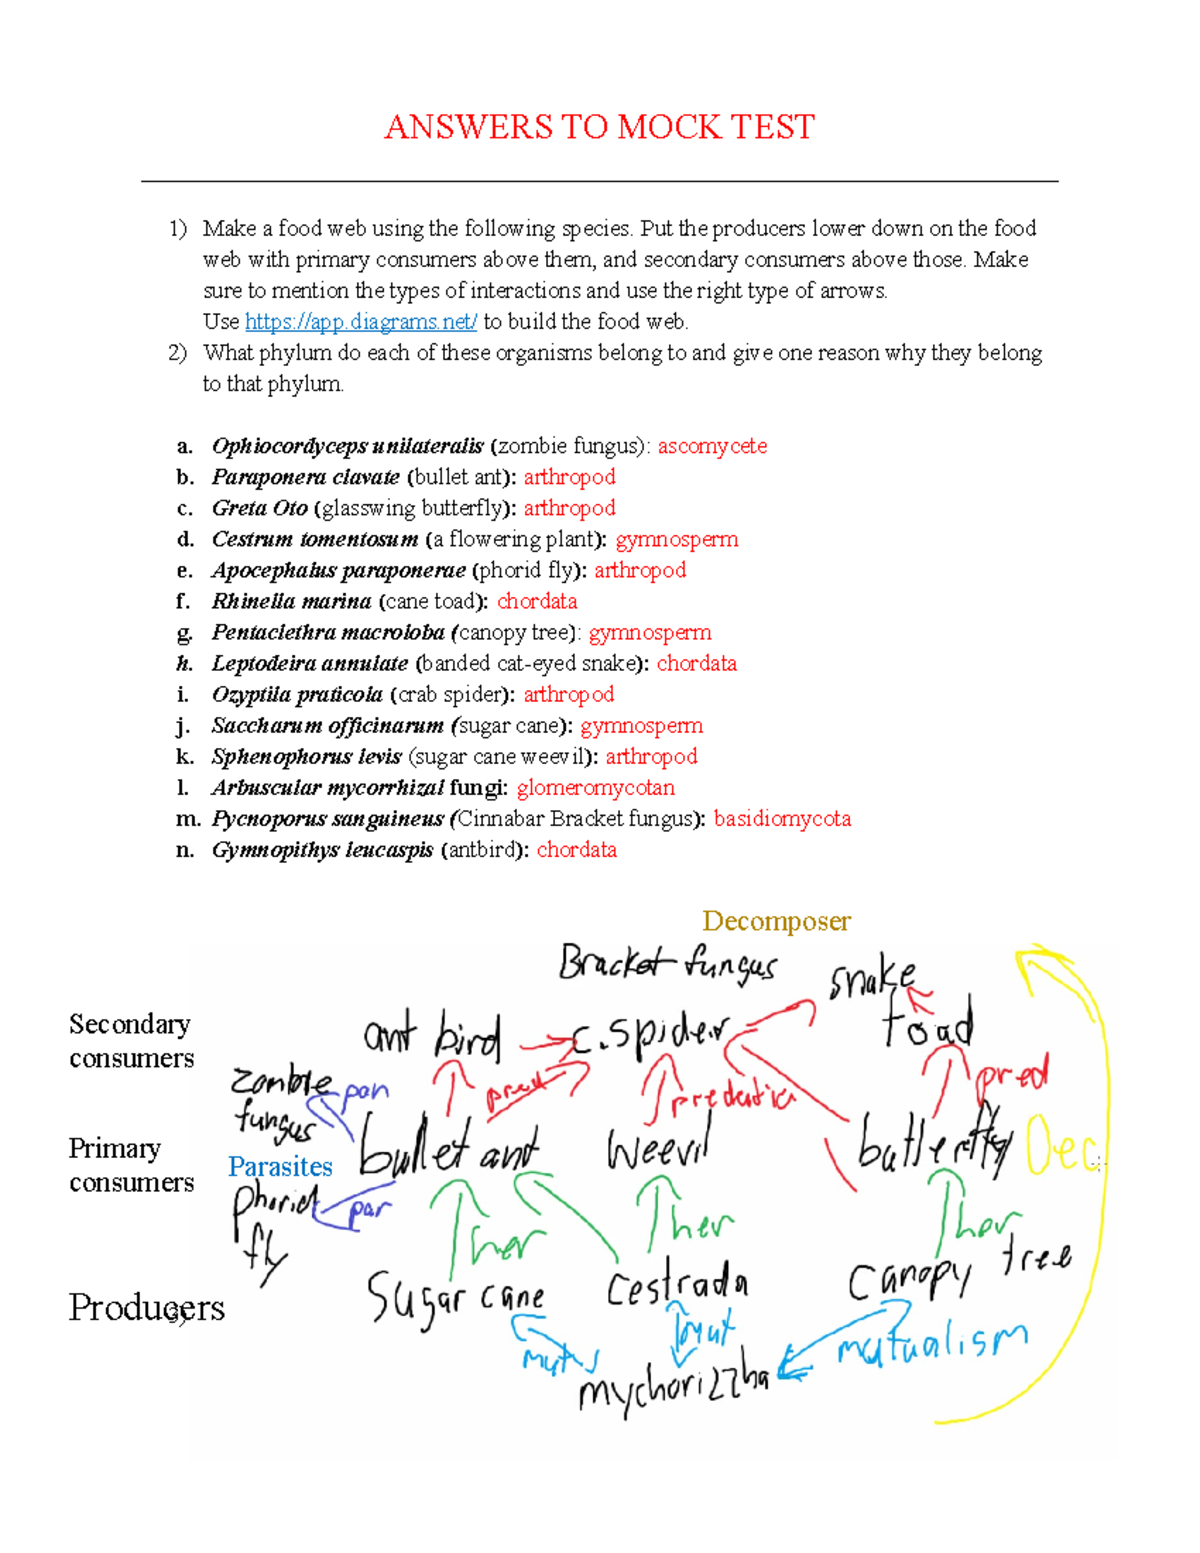 ANSWERS TO MOCK TEST
1) Make a food web using the following species. Put the producers lower down on the food
web with primary consumers above them, and secondary consumers above those. Make
sure to mention the types of interactions and use the right type of arrows.
Use https://app.diagrams.net/ to build the food web.
2) What phylum do each of these organisms belong to and give one reason why they belong
to that phylum.
a. Ophiocordyceps unilateralis (zombie fungus): ascomycete
b. Paraponera clavate (bullet ant): arthropod
c. Greta Oto (glasswing butterfly): arthropod
d. Cestrum tomentosum (a flowering plant): gymnosperm
e. Apocephalus paraponerae (phorid fly): arthropod
f. Rhinella marina (cane toad): chordata
g. Pentaclethra macroloba (canopy tree): gymnosperm
h. Leptodeira annulate (banded cat-eyed snake): chordata
i. Ozyptila praticola (crab spider): arthropod
j. Saccharum officinarum (sugar cane): gymnosperm
k. Sphenophorus levis (sugar cane weevil): arthropod
l. Arbuscular mycorrhizal fungi: glomeromycotan
m. Pycnoporus sanguineus (Cinnabar Bracket fungus): basidiomycota
n. Gymnopithys leucaspis (antbird): chordata
Decomposer
Bracket fungus
snake
Secondary
consumers
ant bird
c.spider
toad
zombie
fungus
par
pred
pred
Primary
consumers
Parasites
bullet ant
weevil
butterfly
Dec
phoried
fly
par
Her
Her
Her
Producers
3)
Sugar cane
Cestrada
Canopy tree
mut
mutualism
mychorizzha